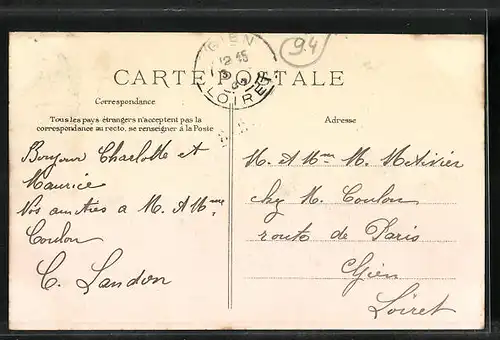 GIEN
12 45
LOIRET
94
CARTE POSTALE
Correspondance
Tous les pays étrangers n'acceptent pas la
correspondance au recto, se renseigner à la Poste
Bonjour Charlotte et
Maurice
Nos amitiés a M. et Mme
Coulon
C. Landon
Adresse
M. et Mme M. Métivier
chez M. Coulon
route de Paris
Gien
Loiret